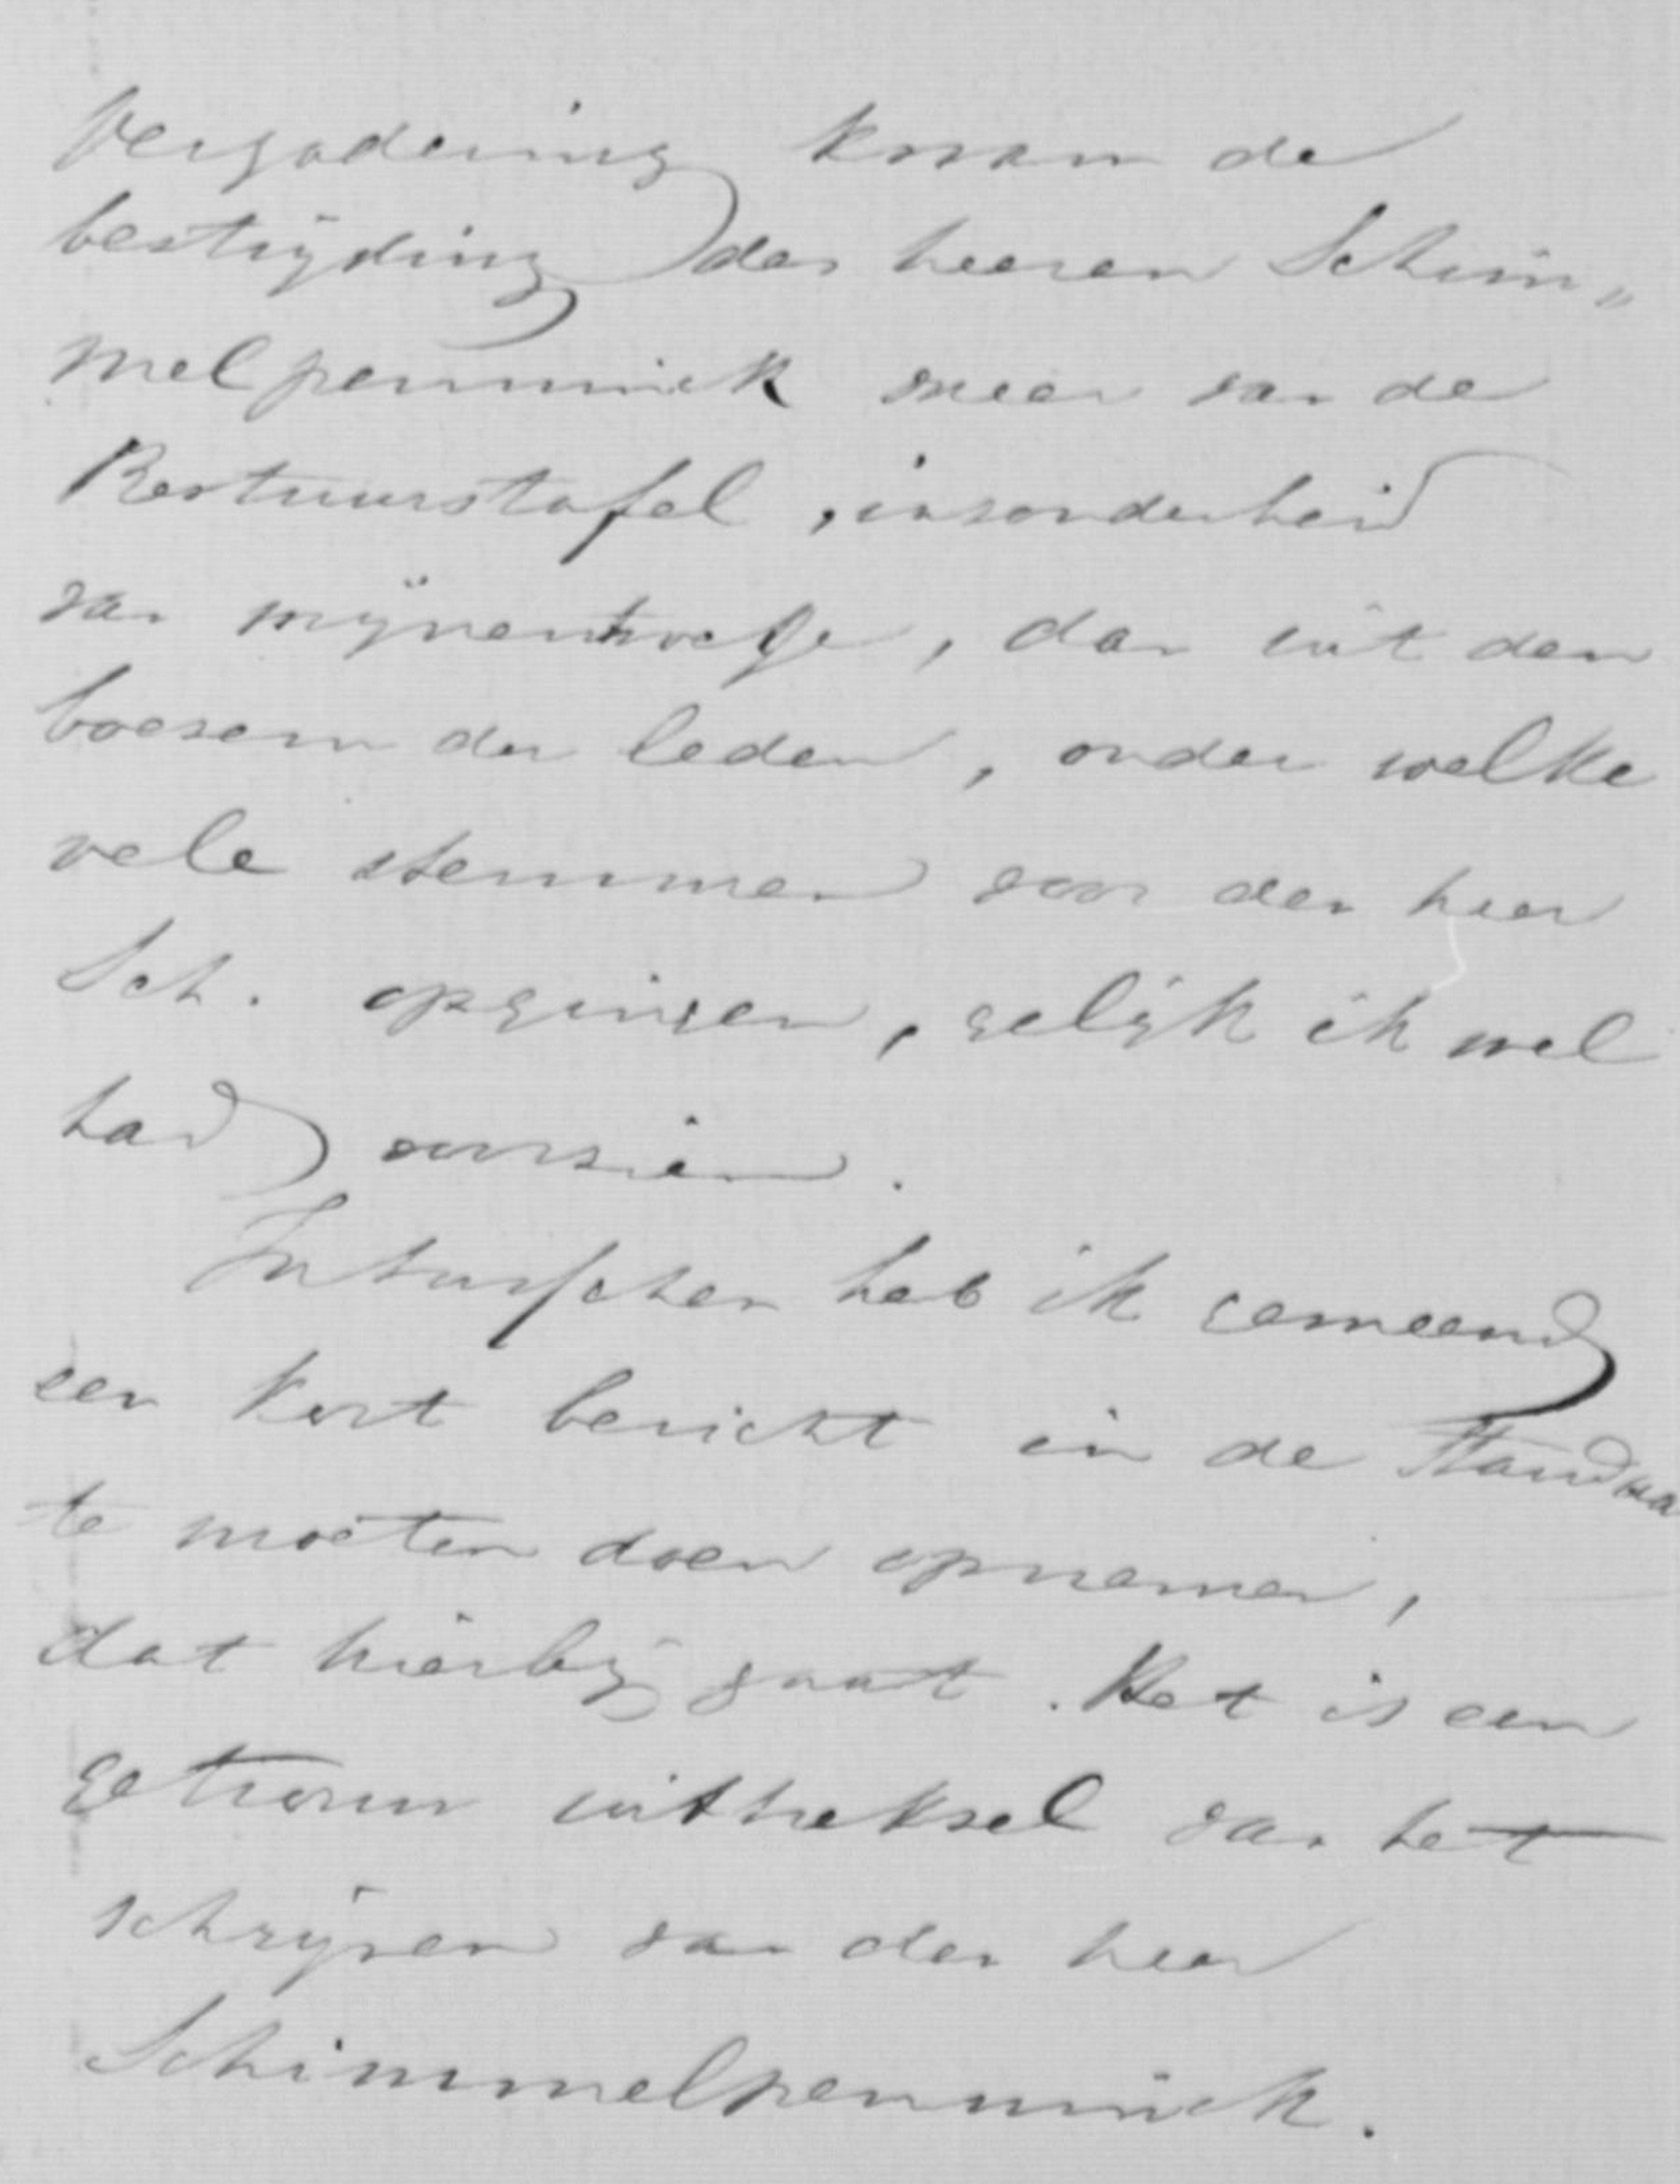 Vergadering kwam de
bestrijding des heeren Schim„
melpenninck meer van de
Bestuurstafel, insonderheid
van mijnentwege, dan uit den
boezem der leden, onder welke
vele stemmen voor den heer
Sch. opgingen, gelijk ik wel
had voorzien.
Intusschen heb ik gemeend
een kort bericht in de Standaa
te moeten doen opnemen,
dat hierbij gaat. Het is een
getrouw uittreksel van het
schrijven van den heer
Schimmelpenninck.